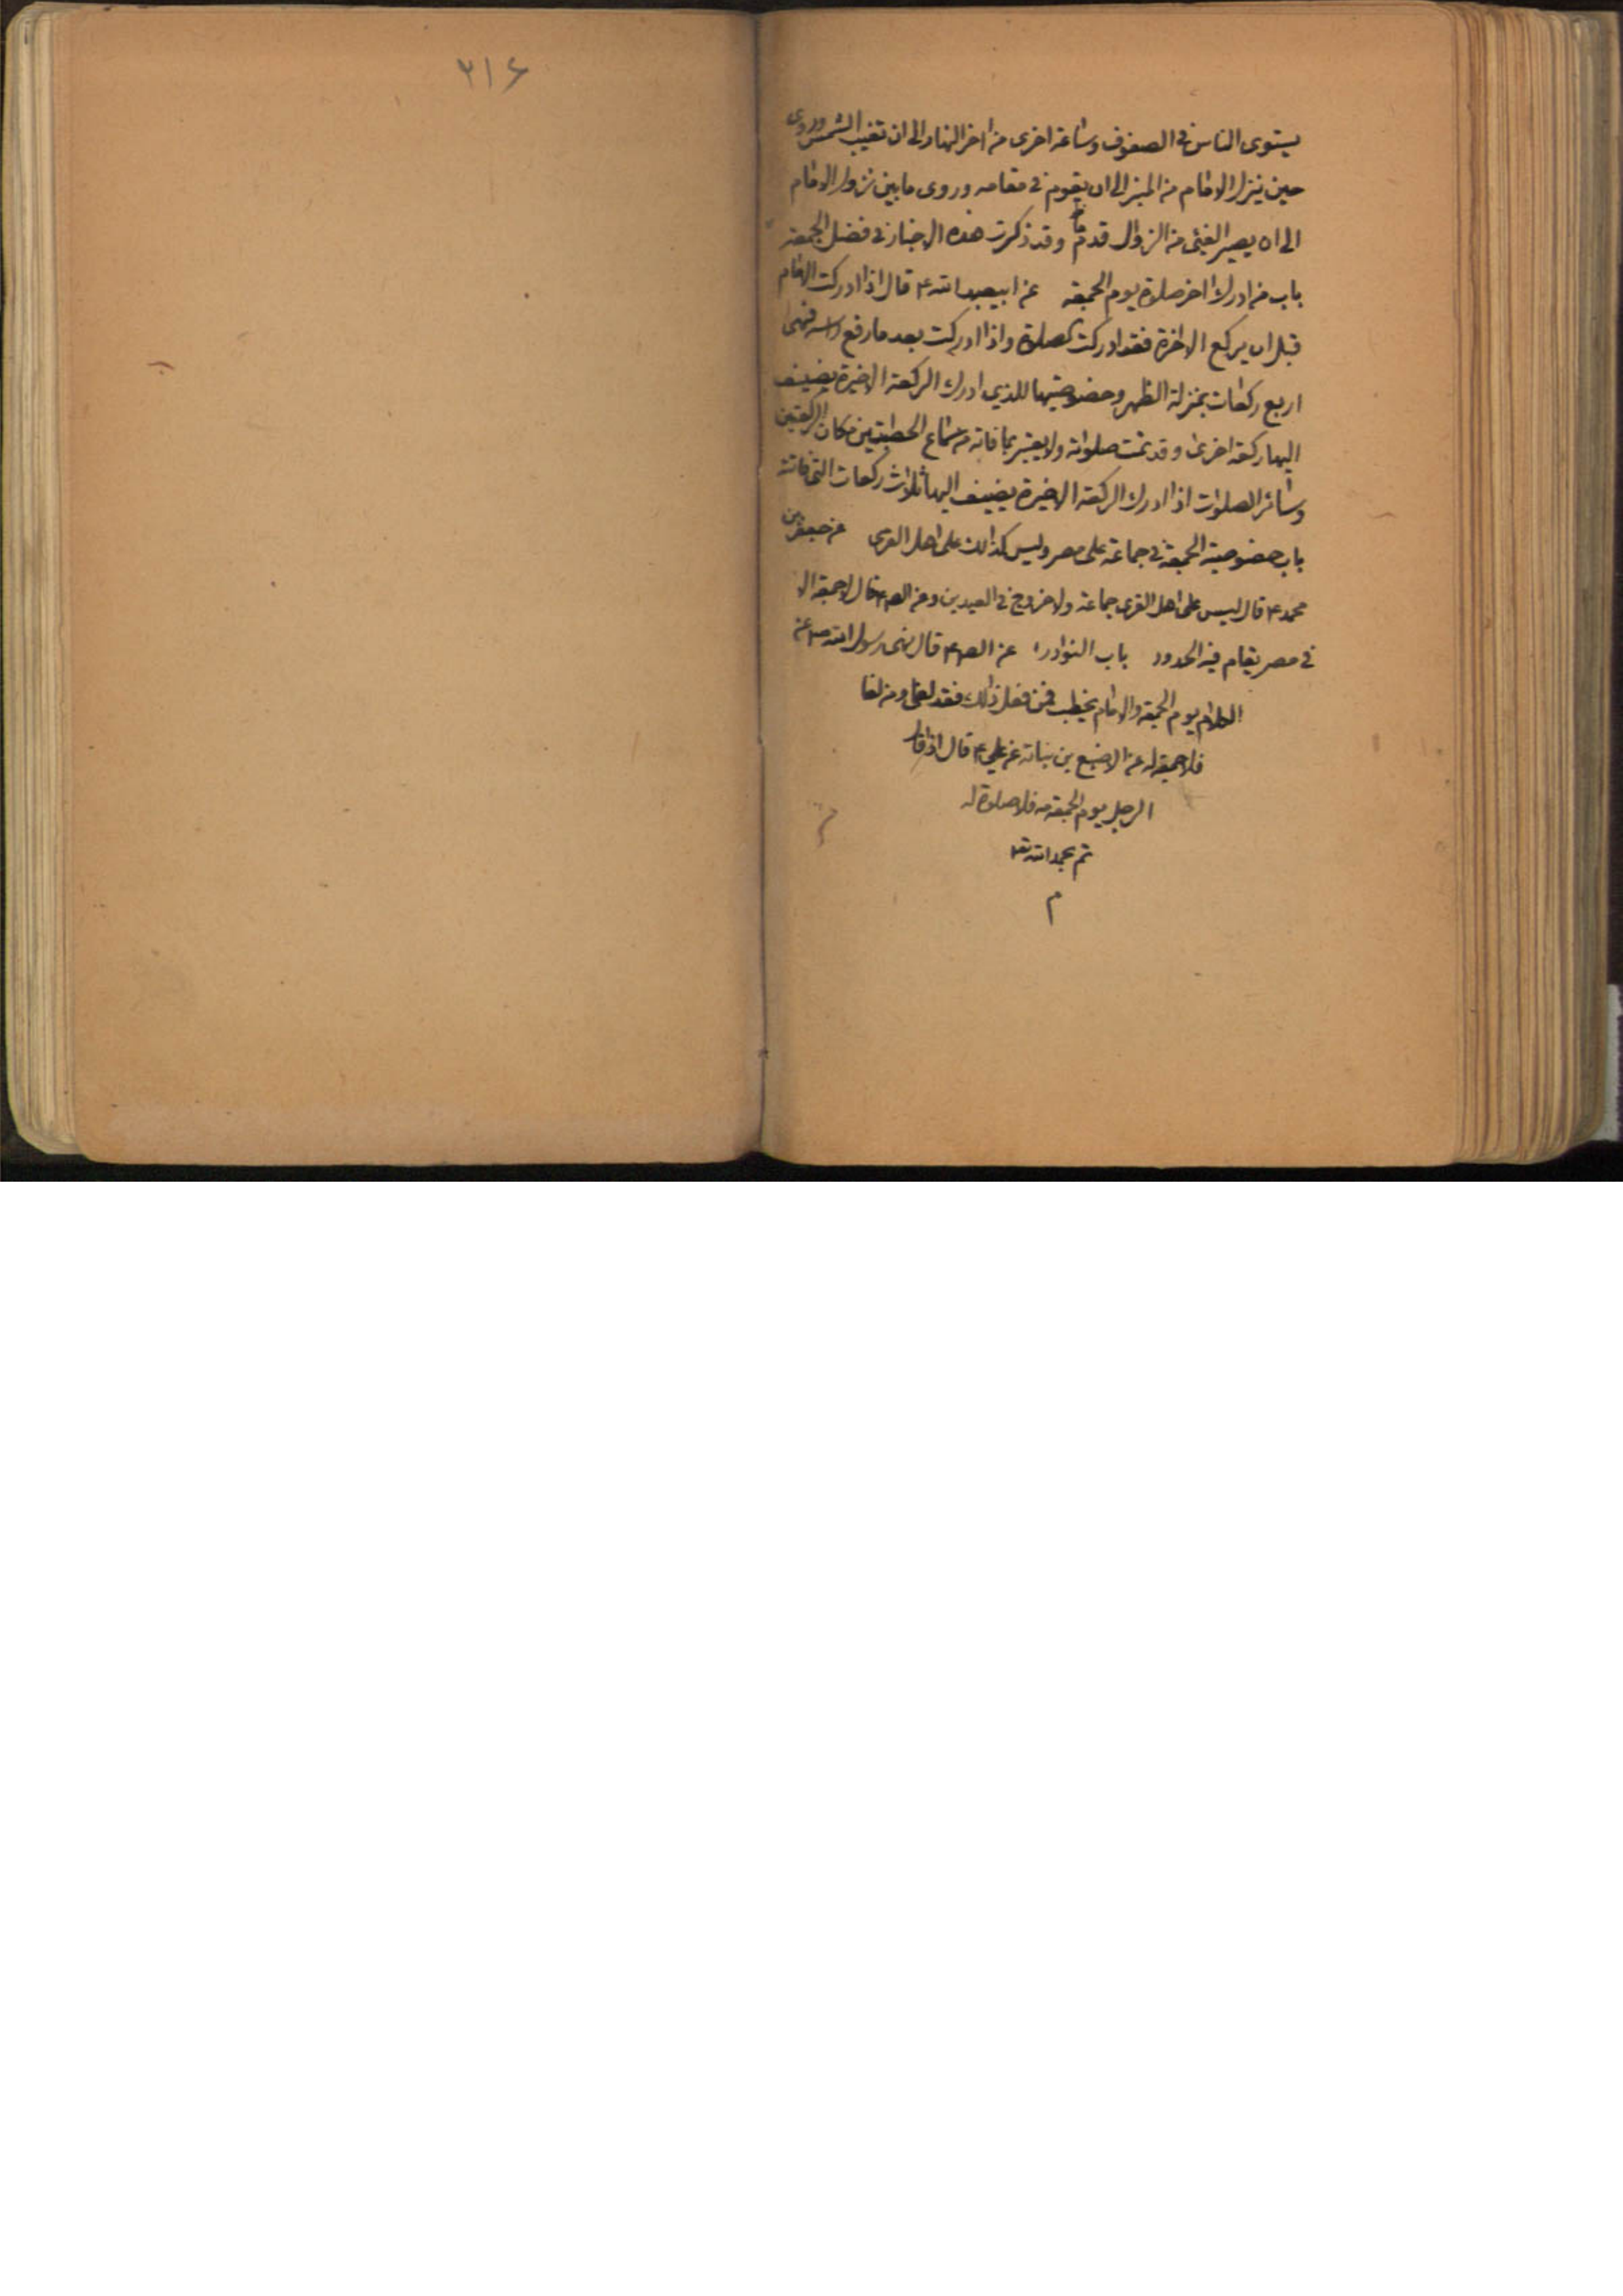 يستوى الناس فى الصفوف وساعة اخرى من اخر النهار الى ان تغيب الشمس وروى
حين ينزل الامام من المنبر الى ان يقوم فى مقامه وروى ما بين نزول الامام
الى ان يصير الفيئ من الزوال قدم وقد ذكرت هذه الاخبار فى فضل الجمعة
باب من ادرك اخر صلاة يوم الجمعة عن ابيعبد الله ع قال اذا ادركت الامام
قبل ان يركع الاخرة فقد ادركت الصلاة واذا ادركت بعد ما رفع راسه فهى
اربع ركعات بمنزلة الظهر وخصوصيتها للذي ادرك الركعة الاخيرة يضيف
اليها ركعة اخرى وقد تمت صلوته ولا يعتبر بما فاته من سماع الخطبتين مكان الركعتين
وسائر الصلوات اذا ادرك الركعة الاخيرة يضيف اليها ثلاث ركعات التى فاتته
باب خصوصية الجمعة فى جماعة على مصر وليس كذالك على اهل القرى عن جعفر بن
محمد ع قال ليس على اهل القرى جماعة ولا خروج فى العيدين وعنه ع قال لا جمعة الا
فى مصر يقام فيه الحدود باب النوادر عن الص ع قال نهى رسول الله ص عن
الكلام يوم الجمعة والامام يخطب فمن فعل ذالك فقد لغى ومن لغا
فلا جمعة له عن الاصبغ بن نباتة عن علي ع قال اذا قال
الرجل يوم الجمعة صه فلا صلوة له
تم بحمد الله تع
م
٢١۶